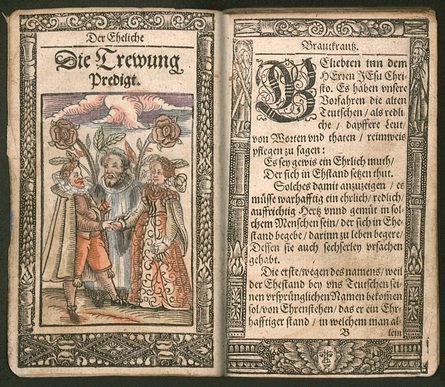 Der Eheliche
Die Trewung
Predigt.
Brautkrantz.
BEliebten inn dem
HErren JEsu Chri-
sto. Es haben vnsere
Vorfahren die alten
Teutschen / als redli
che / dapffere Leut /
von Worten vnd thaten / reimweis
pflegen zu sagen:
Es sey gewis ein Ehrlich muth /
Der sich in Ehstand setzen thut.
Solches damit anzuzeigen / es
müsse warhafftig ein ehrlich / redlich /
auffrichtig Hertz vnnd gemüt in sol-
chem Menschen sein / der sich in Ehe-
stand begebe / darinn zu leben begere /
Dessen sie auch sechserley vrsachen
gehabt.
Die erste / wegen des namens / weil
der Ehestand bey vns Teutschen sei-
nen vrsprünglichen Namen bekommen
sol / von Ehrenstehen / das er ein Ehr-
hafftiger stand / in welchem man al-
B
lein